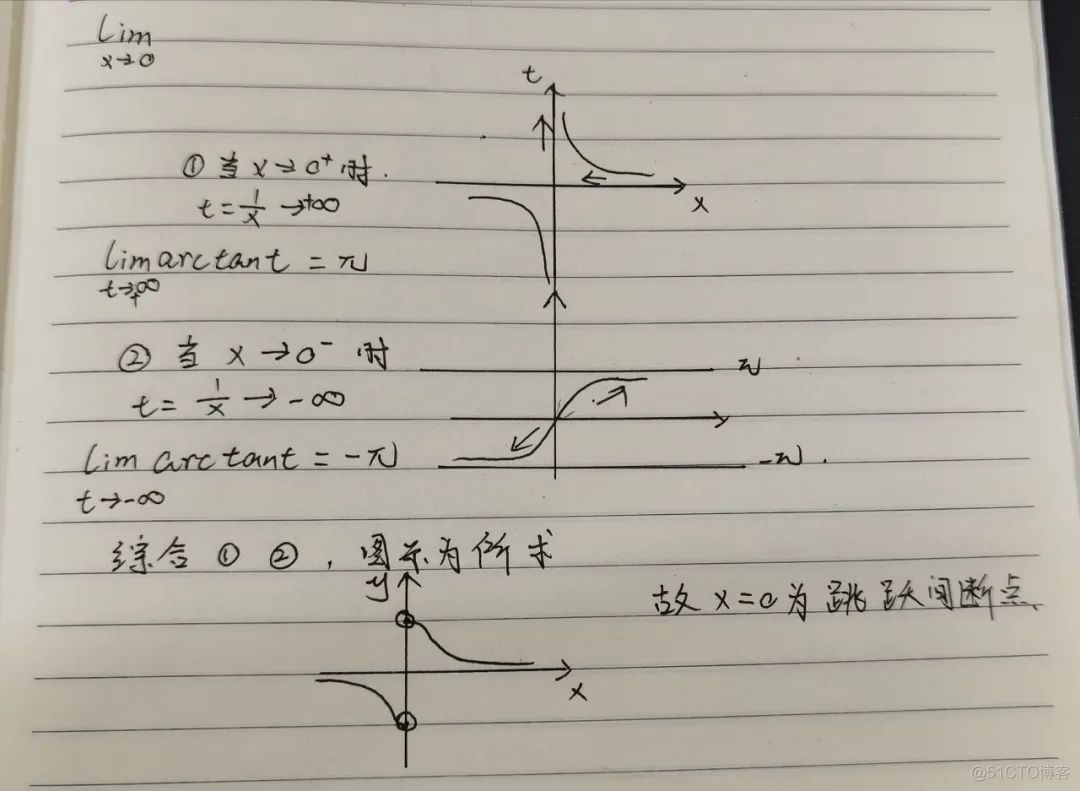 lim
x→0
t
① 当 x→0⁺ 时.
x
t = 1/x →+∞
lim arctant = π
t→+∞
② 当 x→0⁻ 时
π
t = 1/x → -∞
lim arctant = -π
-π.
t→-∞
综合 ① ②, 图示为所求
y
故 x=0 为 跳跃间断点、
x
@51CTO博客